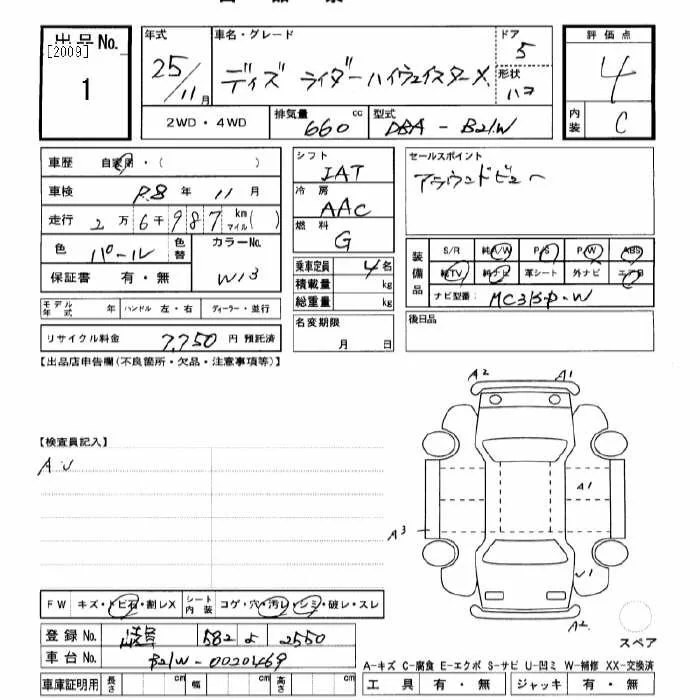 出品No. [2009] 1
年式 25/11月
車名・グレード デイズ ライダーハイウェイスターX
ドア 5
形状 ハコ
評価点 4
内装 C
2WD・4WD 排気量 660 cc 型式 DBA-B21W
車歴 自家用・( )
車検 R.8年 11月
走行 2万6千987 km マイル( )
色 パール 色替 カラーNo. W13
保証書 有・無
モデル年式 年 ハンドル 左・右 ディーラー・並行
リサイクル料金 7,750 円 預託済
シフト IAT
冷房 AAC
燃料 G
乗車定員 4名
積載量 kg
総重量 kg
名変期限 月 日
セールスポイント
アラウンドビュー
装備品 S/R 純A/W P/S P/W ABS
純TV 純ナビ 革シート 外ナビ エアB
ナビ型番:
後日品
【出品店申告欄(不良箇所・欠品・注意事項等)】
【検査員記入】
A・U
A2 A1
A1
A3
U1
A2
スペア
FW キズ・トビ石・割レX シート内装 コゲ・穴・汚レ・シミ・破レ・スレ
登録No. 582 よ 2550
車台No. B21W-0020469
車庫証明用 長さ cm 幅 cm 高さ cm
A-キズ C-腐食 E-エクボ S-サビ U-凹ミ W-補修 XX-交換済
工具 有・無 ジャッキ 有・無